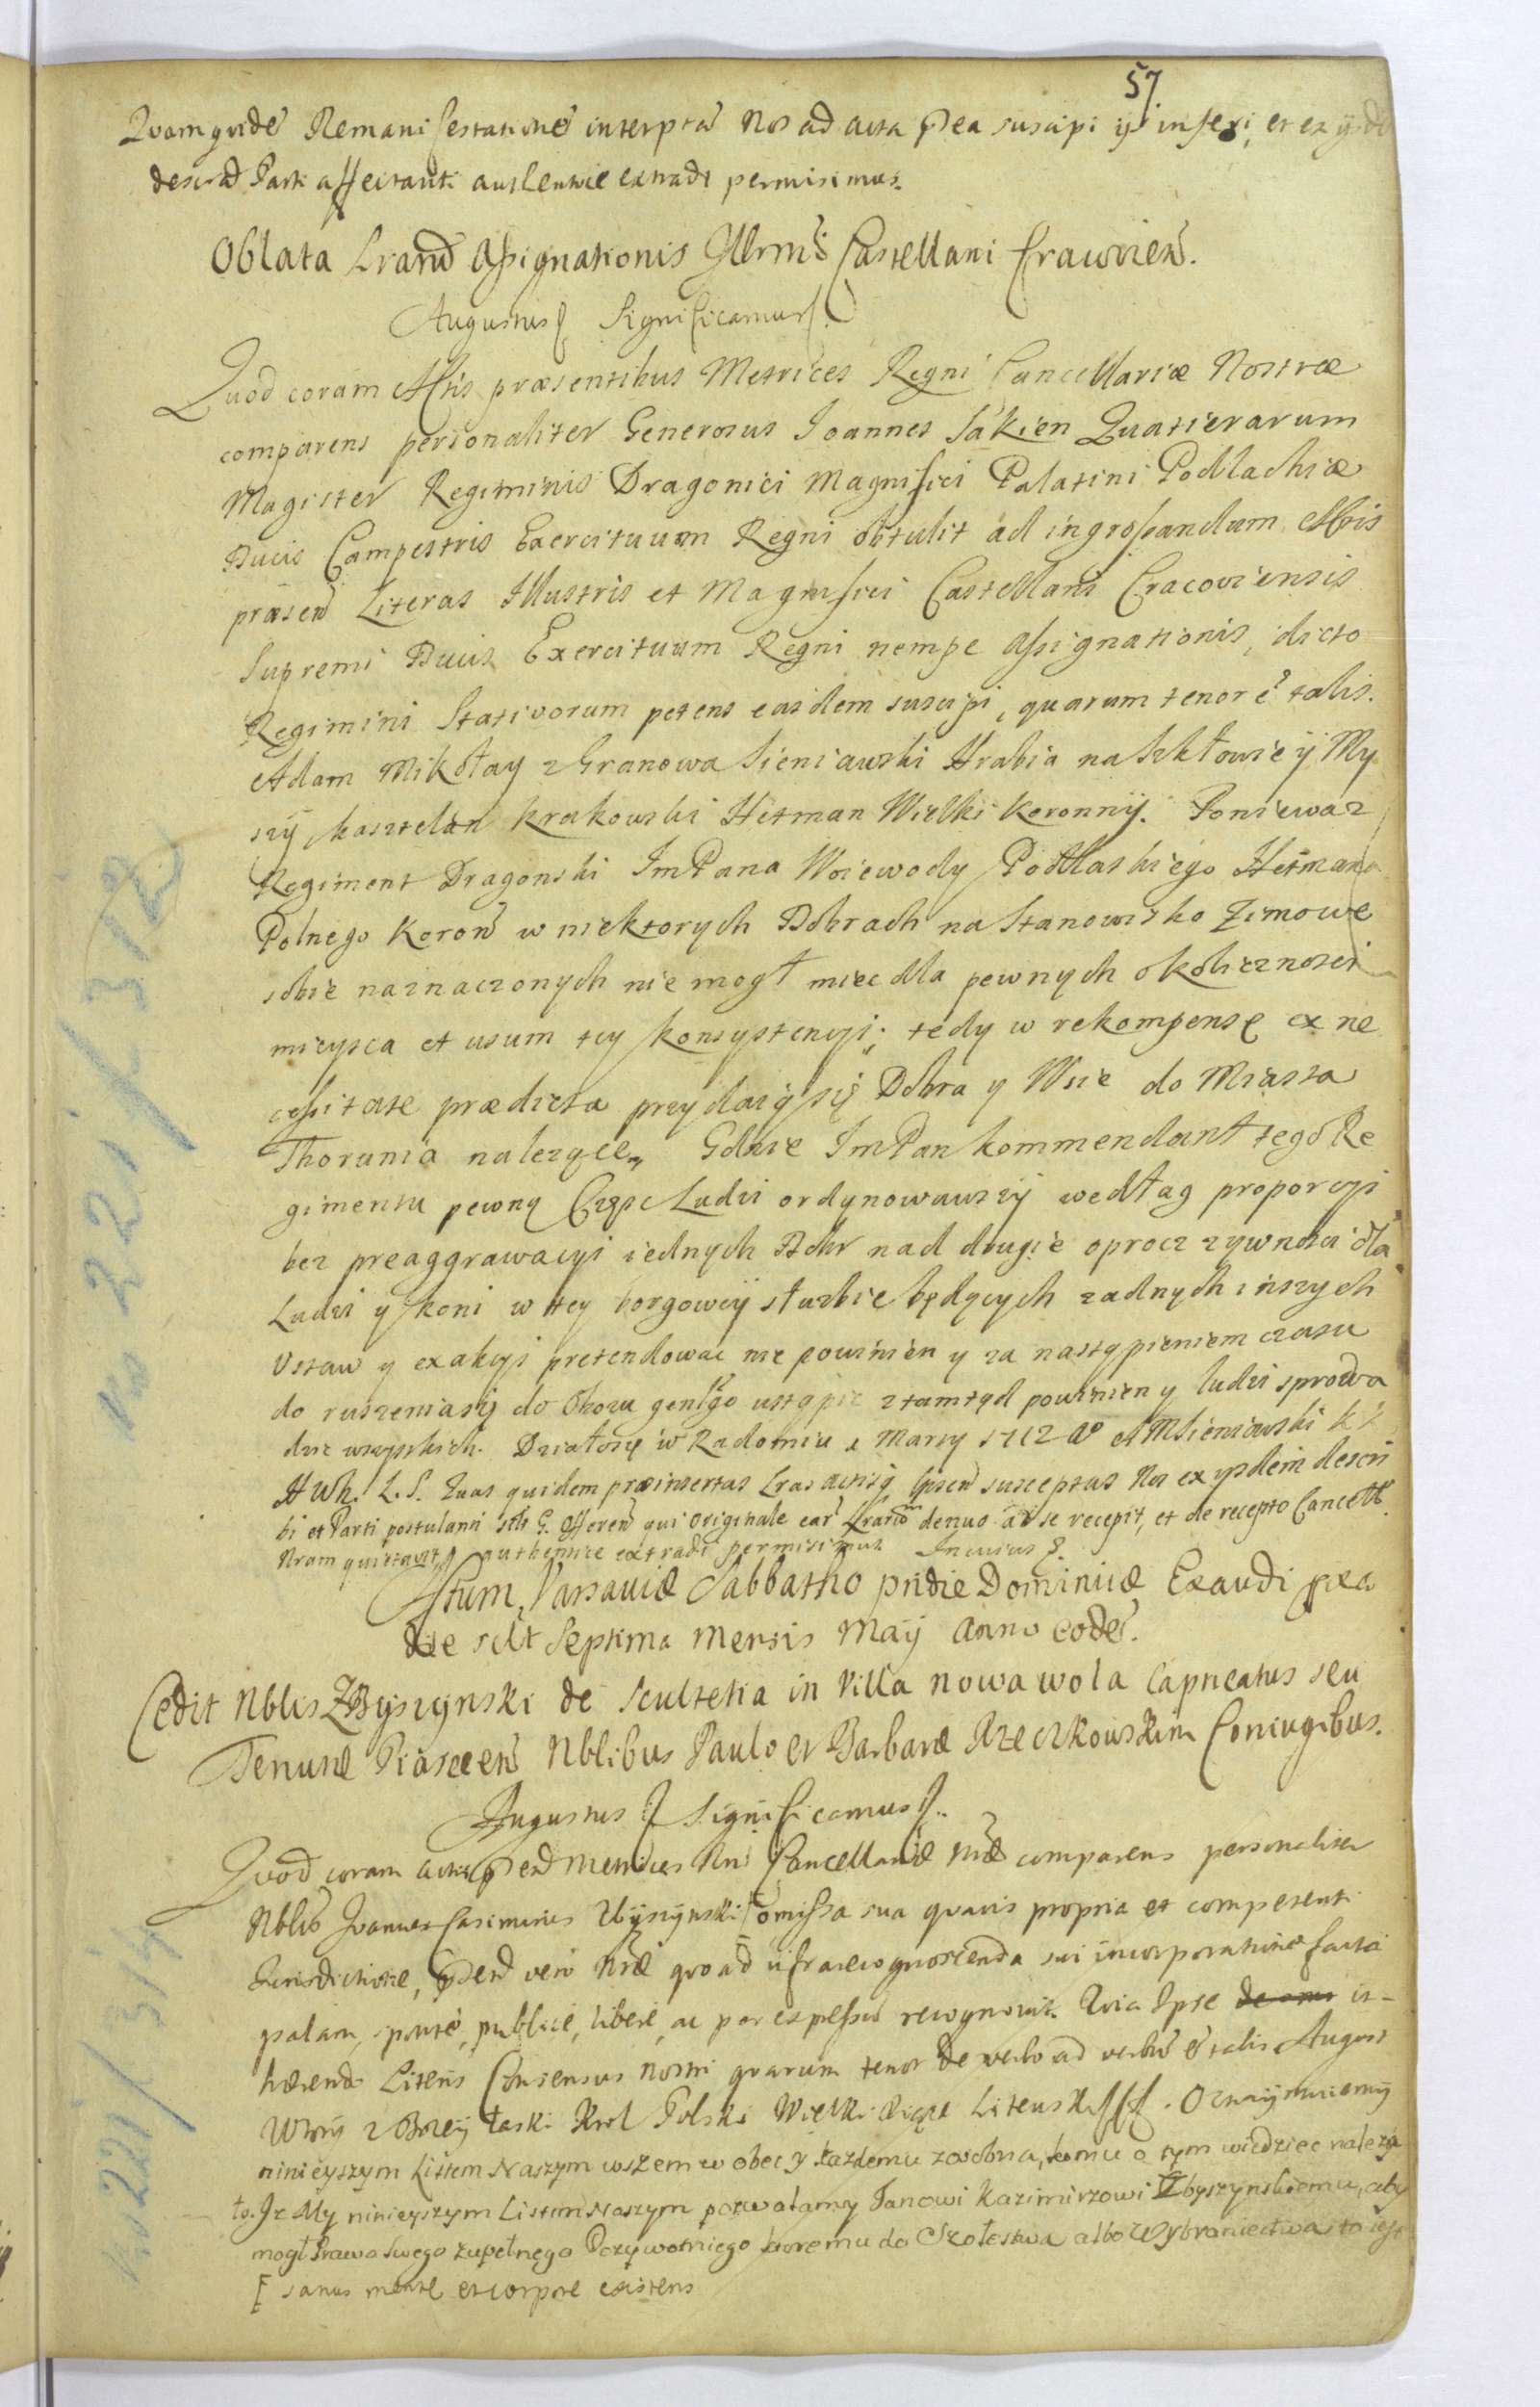 57.
Quamquidē Remanifestationē interpta Nos ad acta pñtea suscipi ÿ inseri, et ex ijsdē
describ Parti affectanti authentice extradi permisimus.
Oblata Lrarū Assignationis Illrmi Castellani Cracovien.
Augustus Significamus
Quod coram Actis præsentibus Metrices Regni Cancellariæ Nostræ
comparens personaliter Generosus Joannes Sakien Quatierarum
Magister Regiminis Dragonici Magnifici Palatini Podlachiæ
Ducis Campestris Exercituum Regni obtulit ad ingrossandum Actis
præsen Literas Illustris et Magnifici Castellani Cracoviensis
Supremi Ducis Exercituum Regni nempe Assignationis, dicto
Regimini Stativorum petens easdem suscipi, quarum tenor ẽ talis.
Adam Mikołay z Granowa Sieniawski Hrabia na Szkłowie ÿ My
szÿ kasztelan krakowski Hetman Wielki koronnÿ. Poniewaz
Regiment Dragonski ImPana Woiewody Podlaskiego Hetmana
Polnego Koron w niektorych Dobrach na Stanowisko Zimowe
sobie naznaczonych nie mogł miec dla pewnych okolicznosci
mieysca et usum tey konsystencyi; tedy w rekompensę ex ne
cessitate prædicta przydaią się Dobra y Wsie do Miasta
Thorunia nalezące, Gdzie ImPan kommendant tego Re
gimentu pewną Częsc Ludzi ordynowawszÿ wedłag proporcyi
bez preaggrawacyi iednych Dobr nad drugie oprocz zywnosci dla
Ludzi ÿ koni w tey borgowÿ słuzbie będących zadnych inszych
Ustaw y exakcyi pretendowac nie powinien y za nastąpieniem czasu
do ruszenia się do Obozu ustąpic ztamtąd powinien y ludzi sprowa
dzic wszystkich. Działosię w Radomiu Marsy 1712 AMSieniawski k k
H W k. L.S. Quas quidem præinsertas Lras susceptas Nos ex ÿsdem descri
bi et Parti postulanti G. Offeren qui Originale ear Lrarū denuo ad se recepit, et de recepto Cancell
Nram quietavit, authentice extradi permisimus In cuius
Actum Varsaviæ Sabbatho pridie Dominicæ Exaudi
die Septima Mensis Maÿ Anno eodē.
Cedit Nblis ZBÿszynski de Scultetia in Villa Nowa wola Capitneatus seu
Tenutæ Piaseczen Nblibus Paulo et Barbaræ Rzeczkowskim Coniugibus.
Augustus Significamus
Quod coram actis pñtibus Metrices Rni Cancellariæ Nræ comparens personaliter
Nblis Joannes Casimirus Zbÿszÿnski [ omissa sua quavis propria et competenti
Jurisdictione, vero Nræ quoad infrarecognoscenda sui incorporatione facta
palam, sponte, publice, libere, ac per expressum recognovit. Quia Ipse in-
hærendo Literis Consensus Nostri quarum tenor de verbo ad verbū ẽ talis. August
Wtorÿ z Bozey łaski Krol Polski Wielki Xiąze Litewski. Oznaÿmuiemÿ
ninieyszym Listem Naszym wszem w obec y kazdemu zosobna, komu o tym wiedziec nalezy
to. Iz My ninieyszym Listem Naszym pozwalamy Janowi Kazimirzowi Zbyszynskiemu, aby
mogł Prawa Swego zupełnego Dozywotniego ktoremu do Szołestwa albo Wybraniectwa to iest
[ sanus mente et corpore existens
No 221/312
No 221/314